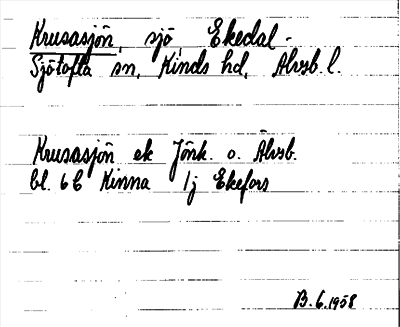 Krusasjön, sjö, Ekedal -
Sjötofta sn, Kinds hd, Älvsb. l.
Krusasjön ek Jönk. o. Älvsb.
bl. 6 C Kinna 1j Ekefors
B. 6. 1958